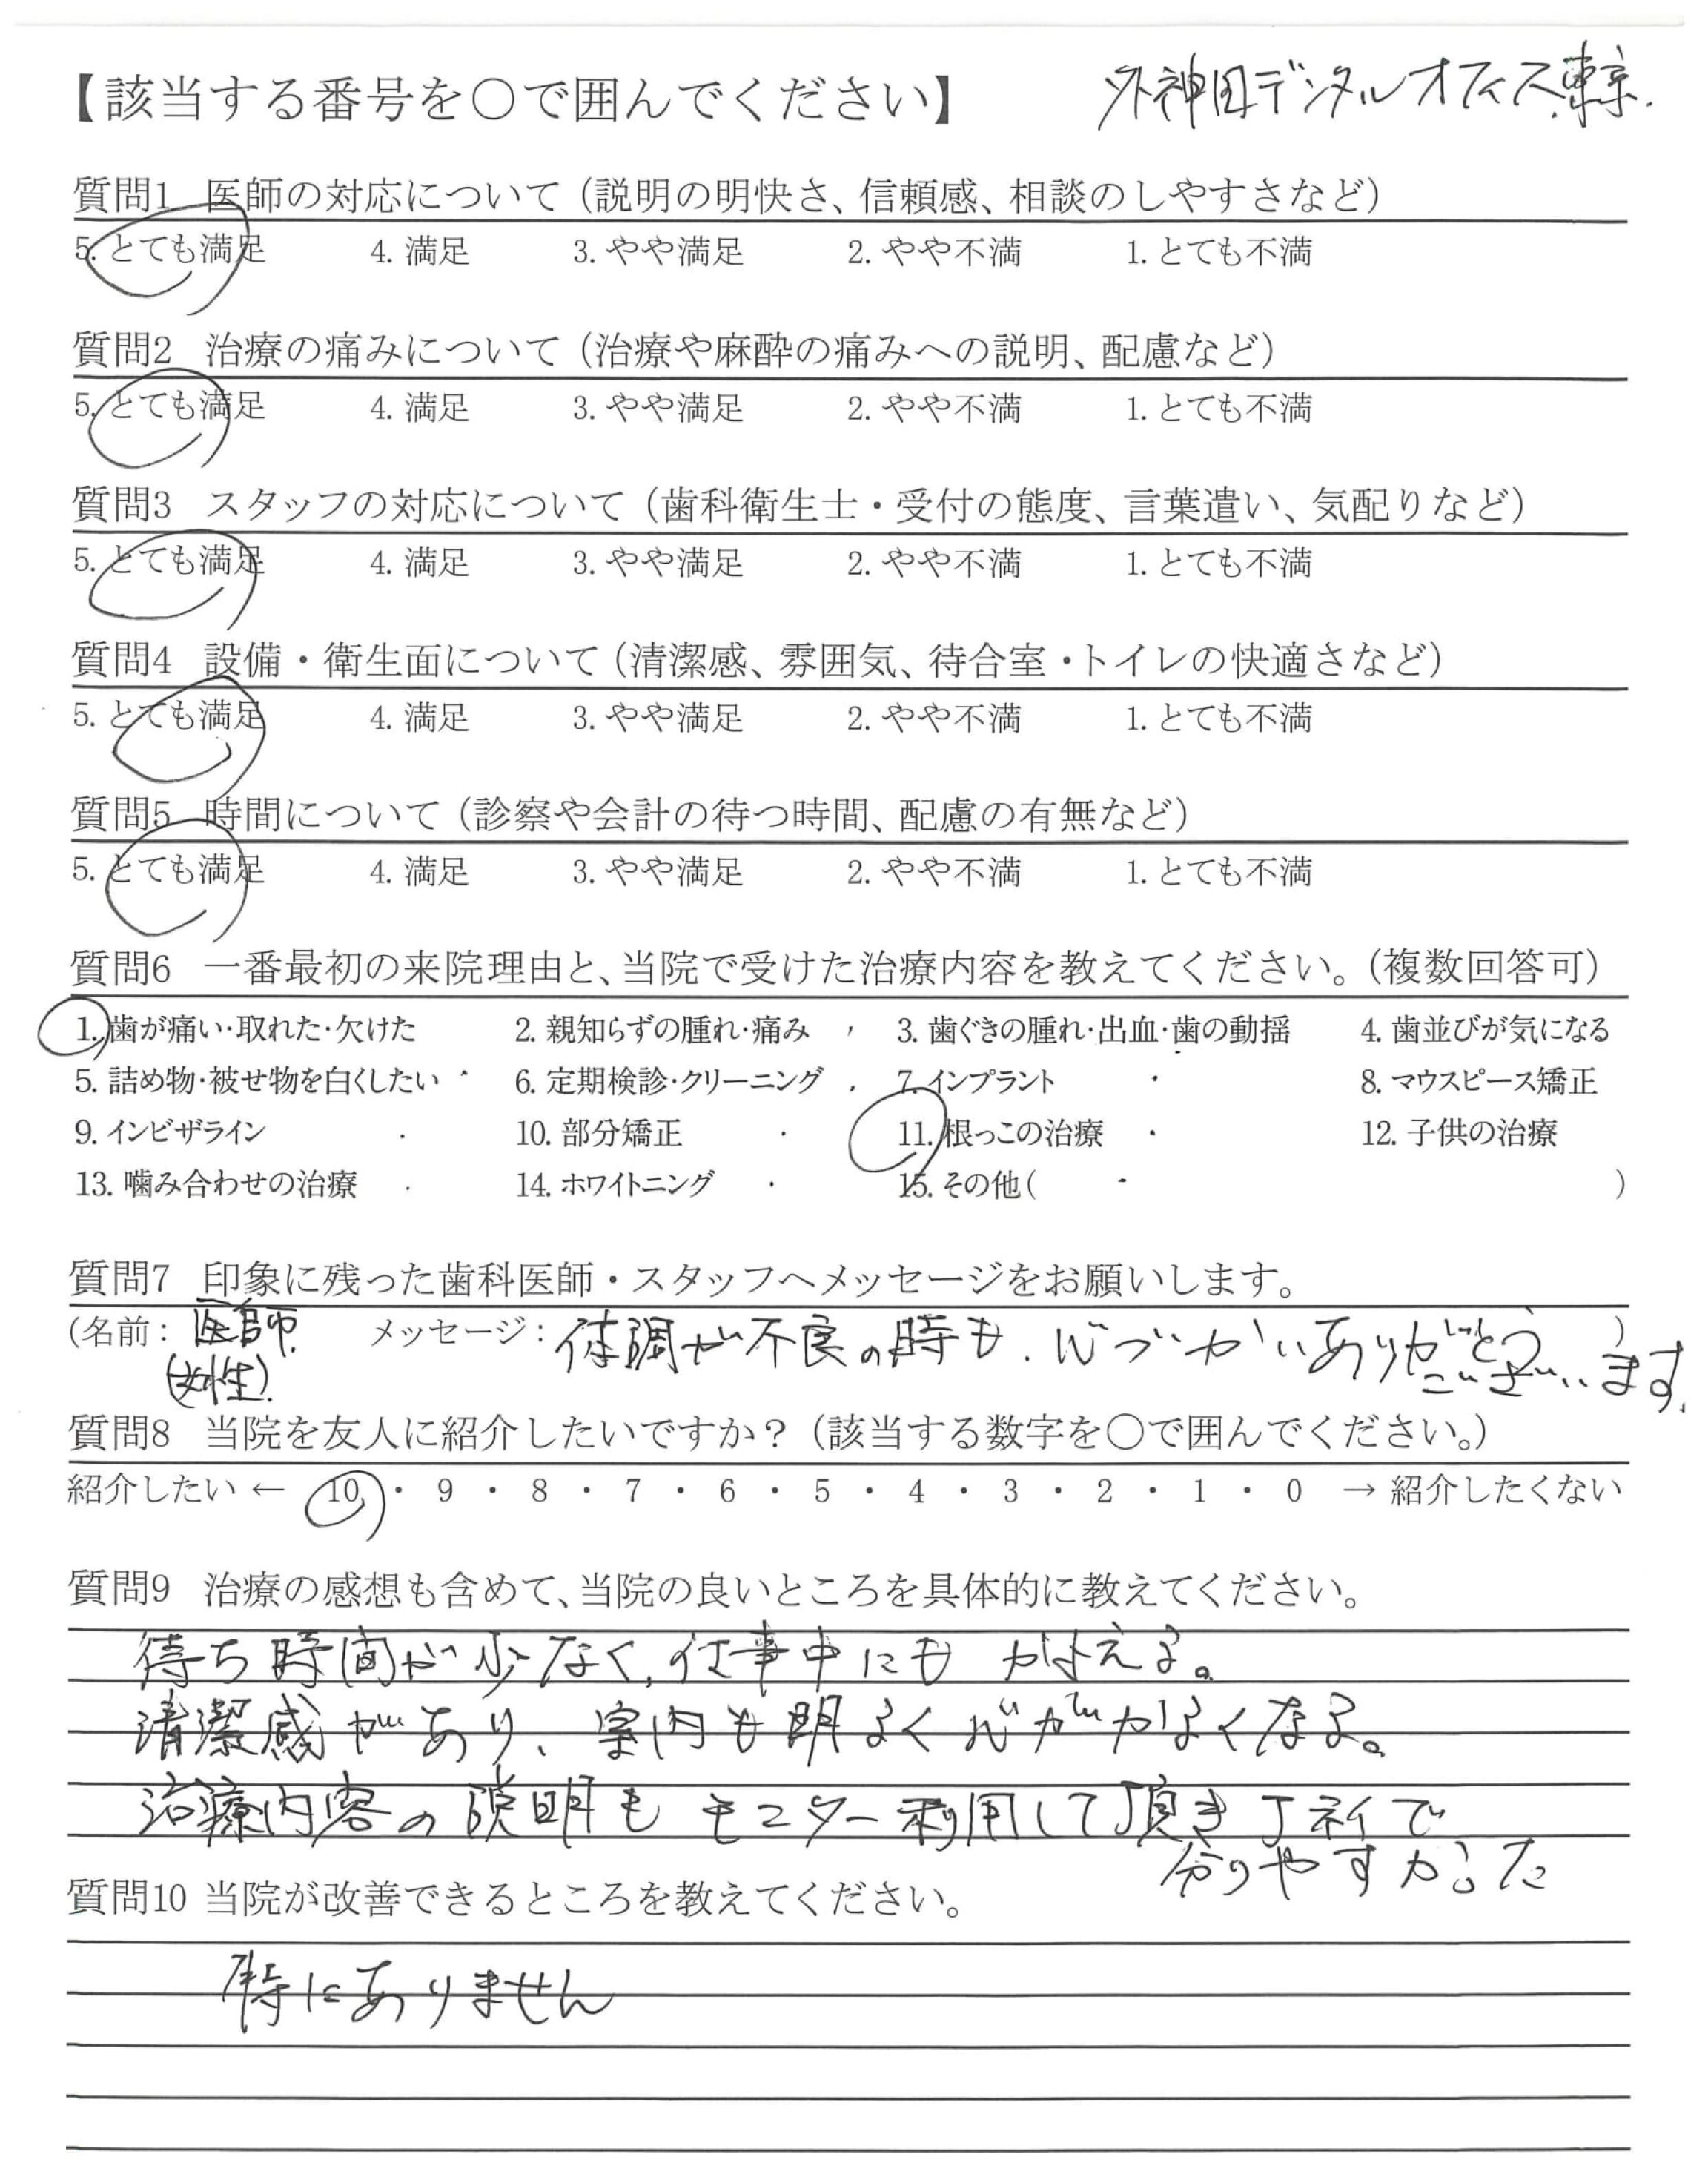 【該当する番号を○で囲んでください】 外神田デンタルオフィス東京.
質問1 医師の対応について(説明の明快さ、信頼感、相談のしやすさなど)
5. とても満足 4. 満足 3. やや満足 2. やや不満 1. とても不満
質問2 治療の痛みについて(治療や麻酔の痛みへの説明、配慮など)
5. とても満足 4. 満足 3. やや満足 2. やや不満 1. とても不満
質問3 スタッフの対応について(歯科衛生士・受付の態度、言葉遣い、気配りなど)
5. とても満足 4. 満足 3. やや満足 2. やや不満 1. とても不満
質問4 設備・衛生面について(清潔感、雰囲気、待合室・トイレの快適さなど)
5. とても満足 4. 満足 3. やや満足 2. やや不満 1. とても不満
質問5 時間について(診察や会計の待つ時間、配慮の有無など)
5. とても満足 4. 満足 3. やや満足 2. やや不満 1. とても不満
質問6 一番最初の来院理由と、当院で受けた治療内容を教えてください。(複数回答可)
1. 歯が痛い・取れた・欠けた 2. 親知らずの腫れ・痛み 3. 歯ぐきの腫れ・出血・歯の動揺 4. 歯並びが気になる
5. 詰め物・被せ物を白くしたい 6. 定期検診・クリーニング 7. インプラント 8. マウスピース矯正
9. インビザライン 10. 部分矯正 11. 根っこの治療 12. 子供の治療
13. 噛み合わせの治療 14. ホワイトニング 15. その他( )
質問7 印象に残った歯科医師・スタッフへメッセージをお願いします。
(名前： 医師. メッセージ： 体調が不良の時も、心づかいありがとう )
(女性). ございます.
質問8 当院を友人に紹介したいですか？(該当する数字を○で囲んでください。)
紹介したい ← 10 ・ 9 ・ 8 ・ 7 ・ 6 ・ 5 ・ 4 ・ 3 ・ 2 ・ 1 ・ 0 → 紹介したくない
質問9 治療の感想も含めて、当院の良いところを具体的に教えてください。
待ち時間が少なく、仕事中にもかよえる。
清潔感があり、案内も明るく心がかるくなる。
治療内容の説明もモニター利用して頂き丁ネイで
分りやすかった
質問10 当院が改善できるところを教えてください。
特にありません